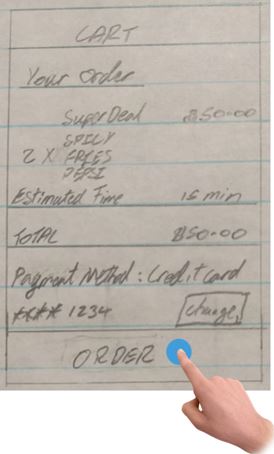 CART
Your Order
SuperDeal $50.00
SPICY
2 X FRIES
PEPSI
Estimated Time 15 min
TOTAL $50.00
Payment Method : Credit card
**** 1234 change
ORDER